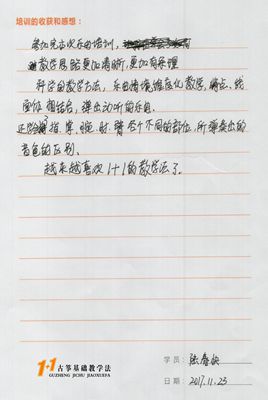 培训的收获和感想：
参加完古筝乐曲培训，
教学思路更加清晰，更加有条理
科学的教学方法，乐曲情境维度化教学，将点、线
面体相结合，弹出动听的乐曲。
指、掌、腕、肘、臂各个不同的部位，所弹奏出的
音色的区别。
越来越喜欢1+1的教学法了。
1+1 古筝基础教学法
GUZHENG JICHU JIAOXUEFA
学员：张春
日期：2017.11.23